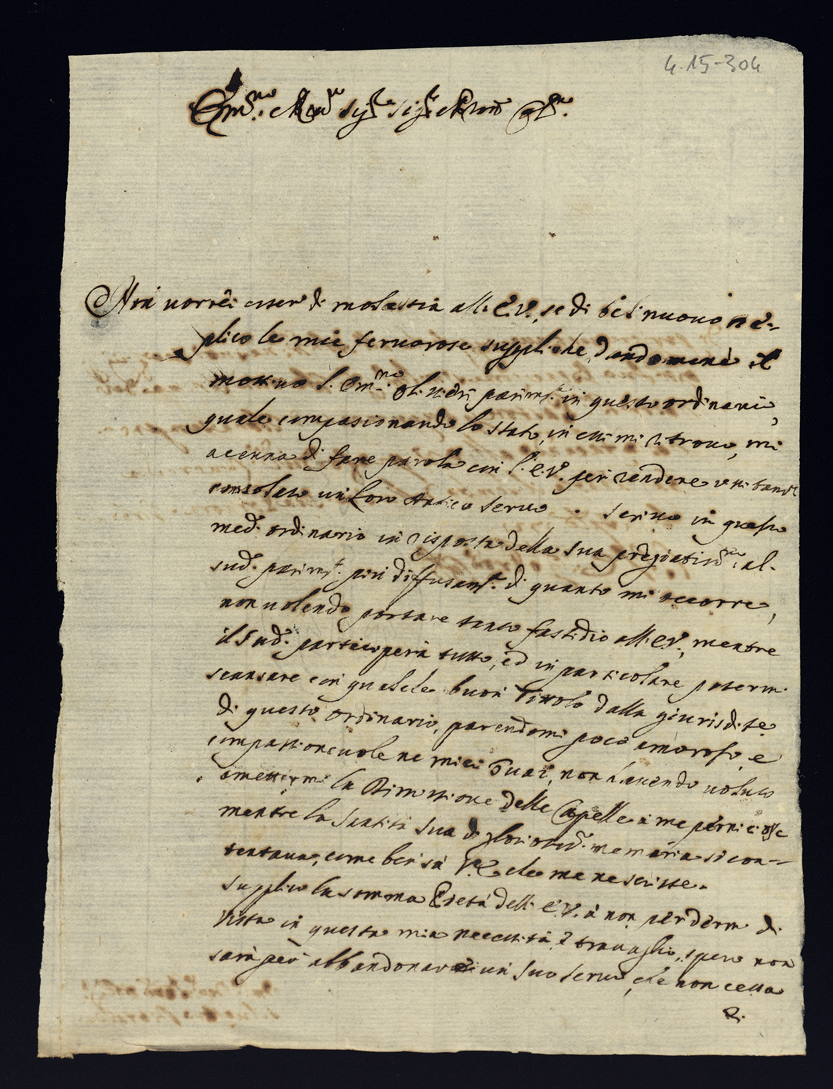 4-15-304
Em.mo e R.mo Sig.re Sig.re e Pron Col.mo
Non vorrei esser di molestia all'E.V., se di bel nuovo re-
plico le mie fervorose suppliche, dandomene il
motivo l'Em.mo Olivieri parim.te in questo ordinario,
quale compasionando lo stato, in cui mi ritrovo, mi
acenna di fare parola con l'E.V. per rendere
consolato un loro antico servo. Scrivo in questo
med.o ordinario in risposta della sua pregiatis.ma al
sud.o parim.te più diffusam.te di quanto mi occorre,
non volendo portare tanto fastidio all'E.V., mentre
il sud.o parteciperà tutto, ed in particolare potermi
scansare con qualche buon titolo dalla giurisdit.e
di questo ordinario, parendomi poco amoroso, e
compassionevole ne miei guai, non havendo voluto
amettermi la Rimissione delle Capelle a me
mentre la Santità Sua di glorios.ma memoria si con-
tentava, come ben sà V.E. che me ne scrisse.
Supplico la somma Pietà dell'E.V. à non perdermi di
vista in questa mia necessità, e travaglio, spero non
sarà per abbandonare un suo servo, che non cessa
di